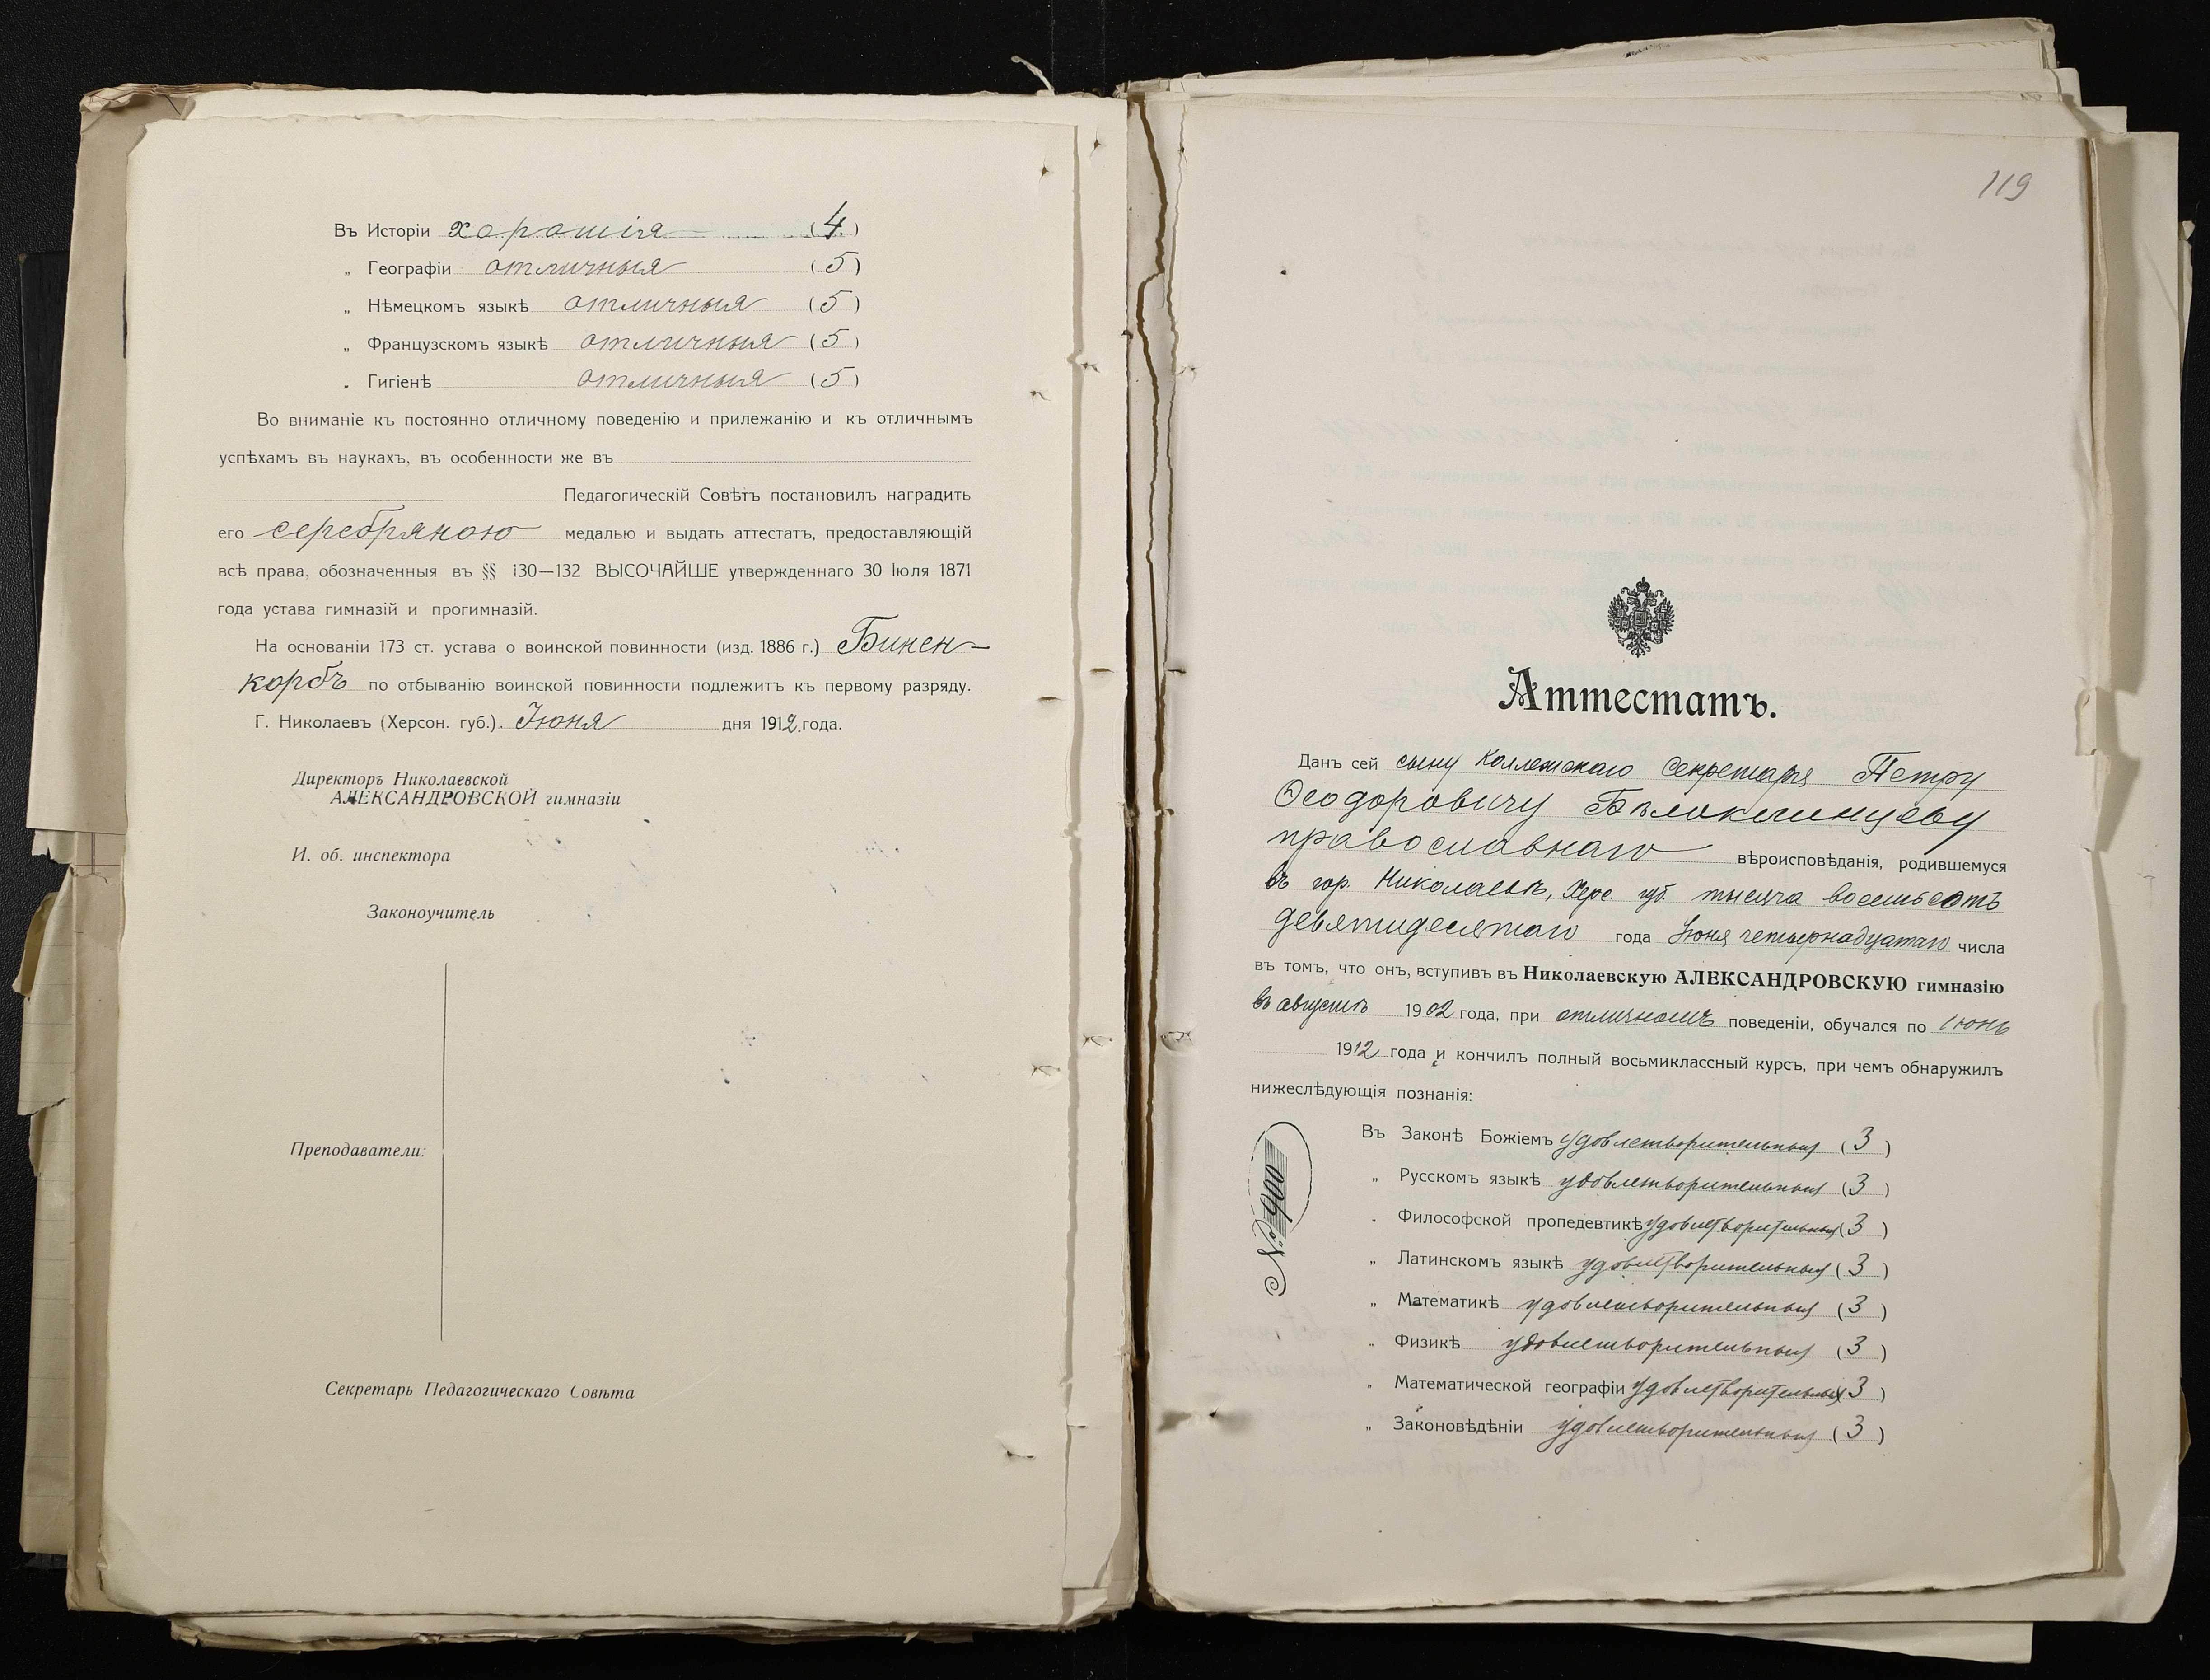 Въ Исторіи хорошія (4.)
„ Географіи отличныя (5)
„ Нѣмецкомъ языкѣ отличныя (5)
„ Французскомъ языкѣ отличныя (5)
„ Гигіенѣ отличныя (5)
Во вниманіе къ постоянно отличному поведенію и прилежанію и къ отличнымъ
успѣхамъ въ наукахъ, въ особенности же въ
Педагогическій Совѣтъ постановилъ наградить
его серебряною медалью и выдать аттестатъ, предоставляющій
всѣ права, обозначенныя въ §§ 130—132 ВЫСОЧАЙШЕ утвержденнаго 30 Іюля 1871
года устава гимназій и прогимназій.
На основаніи 173 ст. устава о воинской повинности (изд. 1886 г.) Бинен-
корбъ по отбыванію воинской повинности подлежитъ къ первому разряду.
Г. Николаевъ (Херсон. губ.). Іюня дня 1912 года.
Директоръ Николаевской
АЛЕКСАНДРОВСКОЙ гимназіи
И. об. инспектора
Законоучитель
Преподаватели:
Секретарь Педагогическаго Совѣта
119
Аттестатъ.
Данъ сей сыну Коллежскаго Секретаря Петру
Ѳеодоровичу Бѣлоклинцеву
православнаго вѣроисповѣданія, родившемуся
въ гор. Николаевѣ, Херс. губ. тысяча восемьсотъ
девятидесятаго года Іюня четырнадцатаго числа
въ томъ, что онъ, вступивъ въ Николаевскую АЛЕКСАНДРОВСКУЮ гимназію
въ августѣ 1902 года, при отличномъ поведеніи, обучался по Іюнь
1912 года и кончилъ полный восьмиклассный курсъ, при чемъ обнаружилъ
нижеслѣдующія познанія:
№ 900
Въ Законѣ Божіемъ удовлетворительныя (3)
„ Русскомъ языкѣ удовлетворительныя (3)
„ Философской пропедевтикѣ удовлетворительныя (3)
„ Латинскомъ языкѣ удовлетворительныя (3)
„ Математикѣ удовлетворительныя (3)
„ Физикѣ удовлетворительныя (3)
„ Математической географіи удовлетворительныя (3)
„ Законовѣдѣніи удовлетворительныя (3)